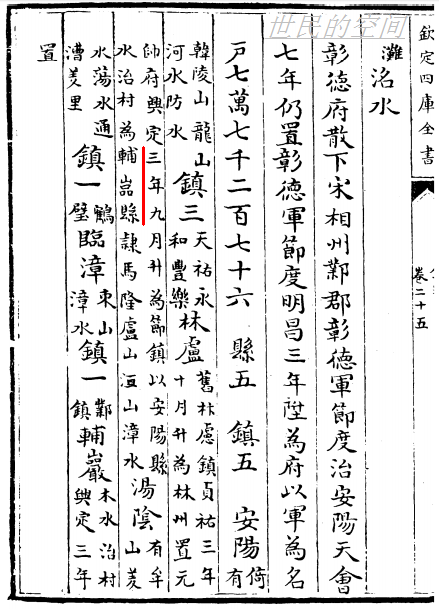 世民的空间
欽定四庫全書
卷二十五
灘洺水
彰德府散下宋相州鄴郡彰德軍節度治安陽天會
七年仍置彰德軍節度明昌三年陞為府以軍為名
戸七萬七千二百七十六 縣五 鎮五 安陽倚有
韓陵山龍山河水防水鎮三天祐永和豐樂林慮舊林慮鎮貞祐三年十月升為林州置元
帥府興定三年九月升為節鎮以安陽縣水治村為輔岩縣隷焉隆慮山洹山漳水湯陰有牟山羑
水蕩水通漕羑里鎮一鶴壁臨漳東山漳水鎮一鄴鎮輔巖木水治村興定三年
置